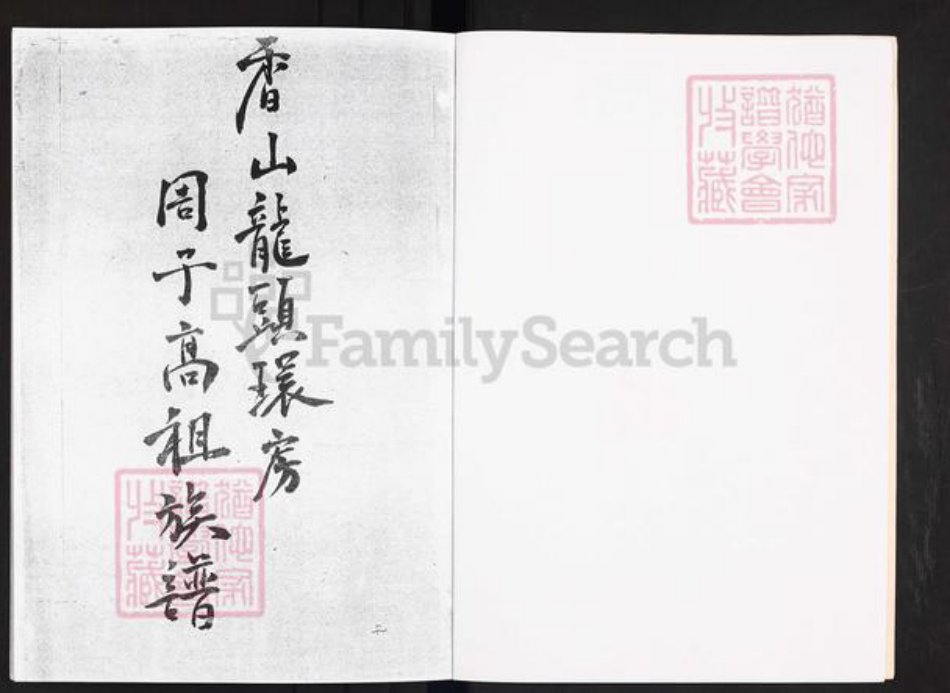 香山龍頭環房
周子高祖族譜
二
猶他家
譜學會
收藏
猶他家
譜學會
收藏
FamilySearch